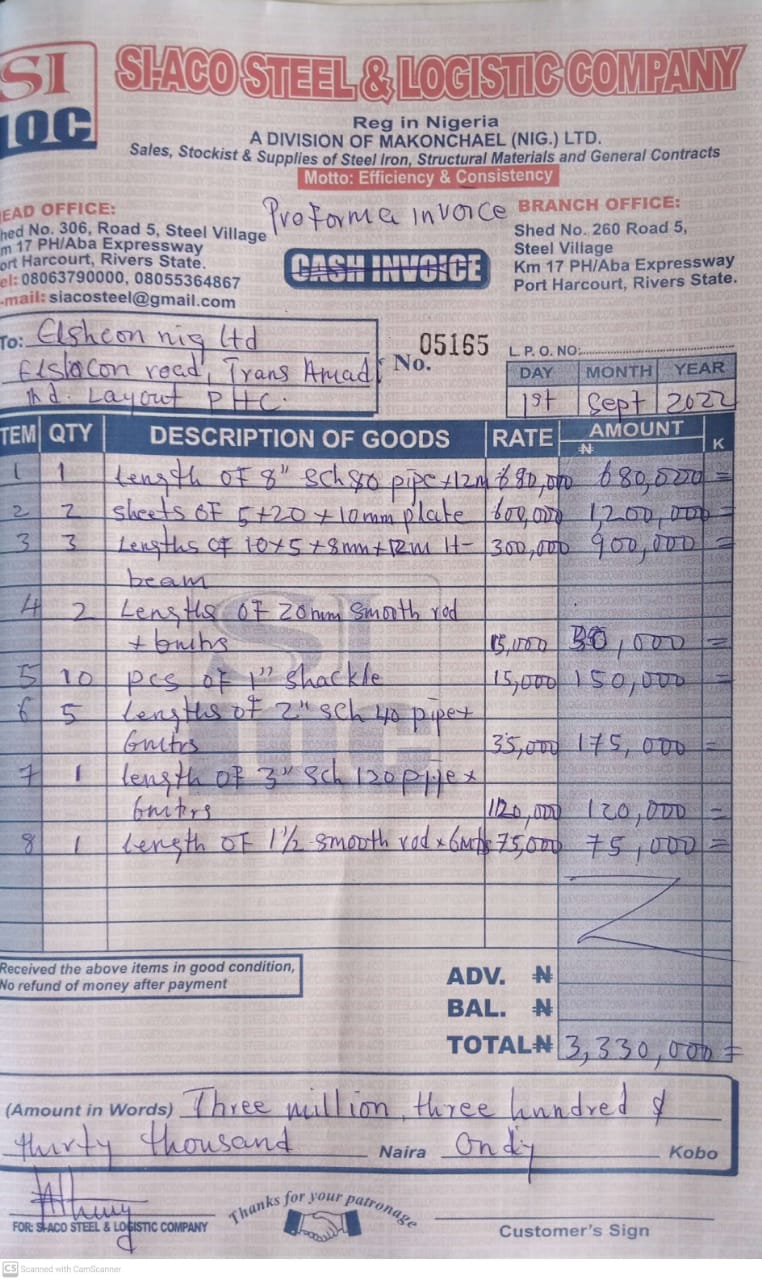 SI
IOC
SI-ACO STEEL & LOGISTIC COMPANY
Reg in Nigeria
A DIVISION OF MAKONCHAEL (NIG.) LTD.
Sales, Stockist & Supplies of Steel Iron, Structural Materials and General Contracts
Motto: Efficiency & Consistency
EAD OFFICE:
hed No. 306, Road 5, Steel Village
m 17 PH/Aba Expressway
ort Harcourt, Rivers State.
el: 08063790000, 08055364867
-mail: siacosteel@gmail.com
Proforma invoice
CASH INVOICE
BRANCH OFFICE:
Shed No. 260 Road 5,
Steel Village
Km 17 PH/Aba Expressway
Port Harcourt, Rivers State.
To: Elsheon nig Ltd
road, Trans Amadi
Ind. Layout PHC.
No. 05165
L.P.O. NO:
DAY MONTH YEAR
1st Sept 2022
TEM QTY DESCRIPTION OF GOODS RATE AMOUNT
₦ K
1 1 Length of 8" Sch 80 pipe+12m 680,000 680,000 =
2 2 sheets of 5+20+10mm plate 600,000 1,200,000 =
3 3 Lengths of 10+5+8mm+12m H- 300,000 900,000 =
beam
4 2 Lengths of 20mm smooth rod
+ 6mtrs 15,000 30,000 =
5 10 pcs of 1" shackle 15,000 150,000 =
6 5 Lengths of 2" sch 40 pipe+
6mtrs 35,000 175,000 =
7 1 length of 3" Sch 120 pipe x
6mtrs 120,000 120,000 =
8 1 length of 1½ smooth rod x 6mtrs 75,000 75,000 =
Received the above items in good condition,
No refund of money after payment
ADV. ₦
BAL. ₦
TOTAL ₦ 3,330,000 =
(Amount in Words) Three million, three hundred &
thirty thousand Naira Only Kobo
FOR: SI-ACO STEEL & LOGISTIC COMPANY
Thanks for your patronage
Customer's Sign
CS Scanned with CamScanner